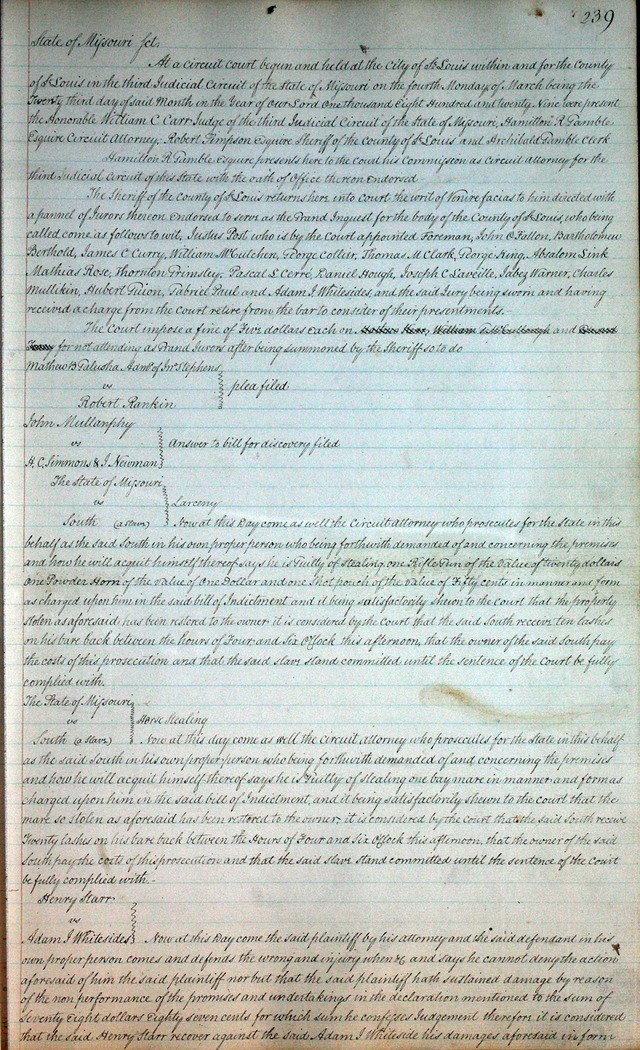 239
State of Missouri sct.
At a circuit court begun and held at the City of St Louis within and for the County
of St Louis in the third Judicial Circuit of the State of Missouri on the fourth Monday of March being the
Twenty third day of said Month in the Year of Our Lord One thousand Eight Hundred and twenty Nine were present
the Honorable William C Carr Judge of the third Judicial Circuit of the State of Missouri, Hamilton R Gamble
Esquire Circuit Attorney, Robert Simpson Esquire Sheriff of the County of St Louis and Archibald Gamble Clerk
Hamilton R Gamble Esquire presents here to the Court his Commission as Circuit Attorney for the
third Judicial Circuit of this State with the oath of Office thereon Endorsed
The Sheriff of the County of St Louis returns here into Court the writ of Venire facias to him directed with
a pannel of Jurors thereon Endorsed to serve as the Grand Inquest for the body of the County of St Louis, who being
called come as follows to wit, Justus Post who is by the Court appointed Foreman, John O Fallon, Bartholomew
Berthold, James C Curry, William McCutchen, George Collier, Thomas M Clark, George King, Absalom Link
Mathias Rose, Thornton Grimsley, Pascal L Cerré, Daniel Hough, Joseph C Laveille, Jabez Warner, Charles
Mullikin, Hubert Guion, Gabriel Paul and Adam J Whitesides, and the said Jury being sworn and having
received a charge from the Court retire from the bar to consider of their presentments.
The Court impose a fine of Five dollars each on William and
for not attending as Grand Jurors after being summoned by the Sheriff so to do
Mathew B Galusha Admr of Jno Stephens
vs plea filed
Robert Rankin
John Mullanphy
vs Answer to bill for discovery filed
H. C. Simmons & J Newman
The State of Missouri
vs Larceny
South (a slave) Now at this Day come as well the Circuit Attorney who prosecutes for the State in this
behalf as the said South in his own proper person who being forthwith demanded of and concerning the premises
and how he will acquit himself thereof says he is Guilty of Stealing one Rifle Gun of the Value of twenty dollars
one Powder Horn of the value of One Dollar and one Shot pouch of the value of Fifty cents in manner and form
as charged upon him in the said bill of Indictment and it being satisfactorily shewn to the Court that the property
stolen as aforesaid has been restored to the owner it is considered by the Court that the said South receive ten lashes
on his bare back between the hours of Four and Six OClock this afternoon, that the owner of the said South pay
the costs of this prosecution and that the said slave stand committed until the sentence of the Court be fully
complied with.
The State of Missouri
vs Horse Stealing
South (a slave) Now at this day come as well the Circuit Attorney who prosecutes for the State in this behalf
as the said South in his own proper person who being forthwith demanded of and concerning the premises
and how he will acquit himself thereof says he is Guilty of stealing one bay mare in manner and form as
charged upon him in the said bill of Indictment, and it being satisfactorily shewn to the court that the
mare so stolen as aforesaid has been restored to the owner, it is considered by the Court that the said South receive
Twenty lashes on his bare back between the Hours of Four and Six OClock this afternoon, that the owner of the said
South pay the costs of this prosecution and that the said slave stand committed until the sentence of the Court
be fully complied with. -
Henry Starr
vs
Adam J Whitesides Now at this Day come the said plaintiff by his attorney and the said defendant in his
own proper person comes and defends the wrong and injury when &c and says he cannot deny the action
aforesaid of him the said plaintiff nor but that the said plaintiff hath sustained damage by reason
of the non performance of the promises and undertakings in the declaration mentioned to the sum of
Seventy Eight dollars Eighty seven cents for which sum he confesses Judgement therefore it is considered
that the said Henry Starr recover against the said Adam J Whiteside his damages aforesaid in form